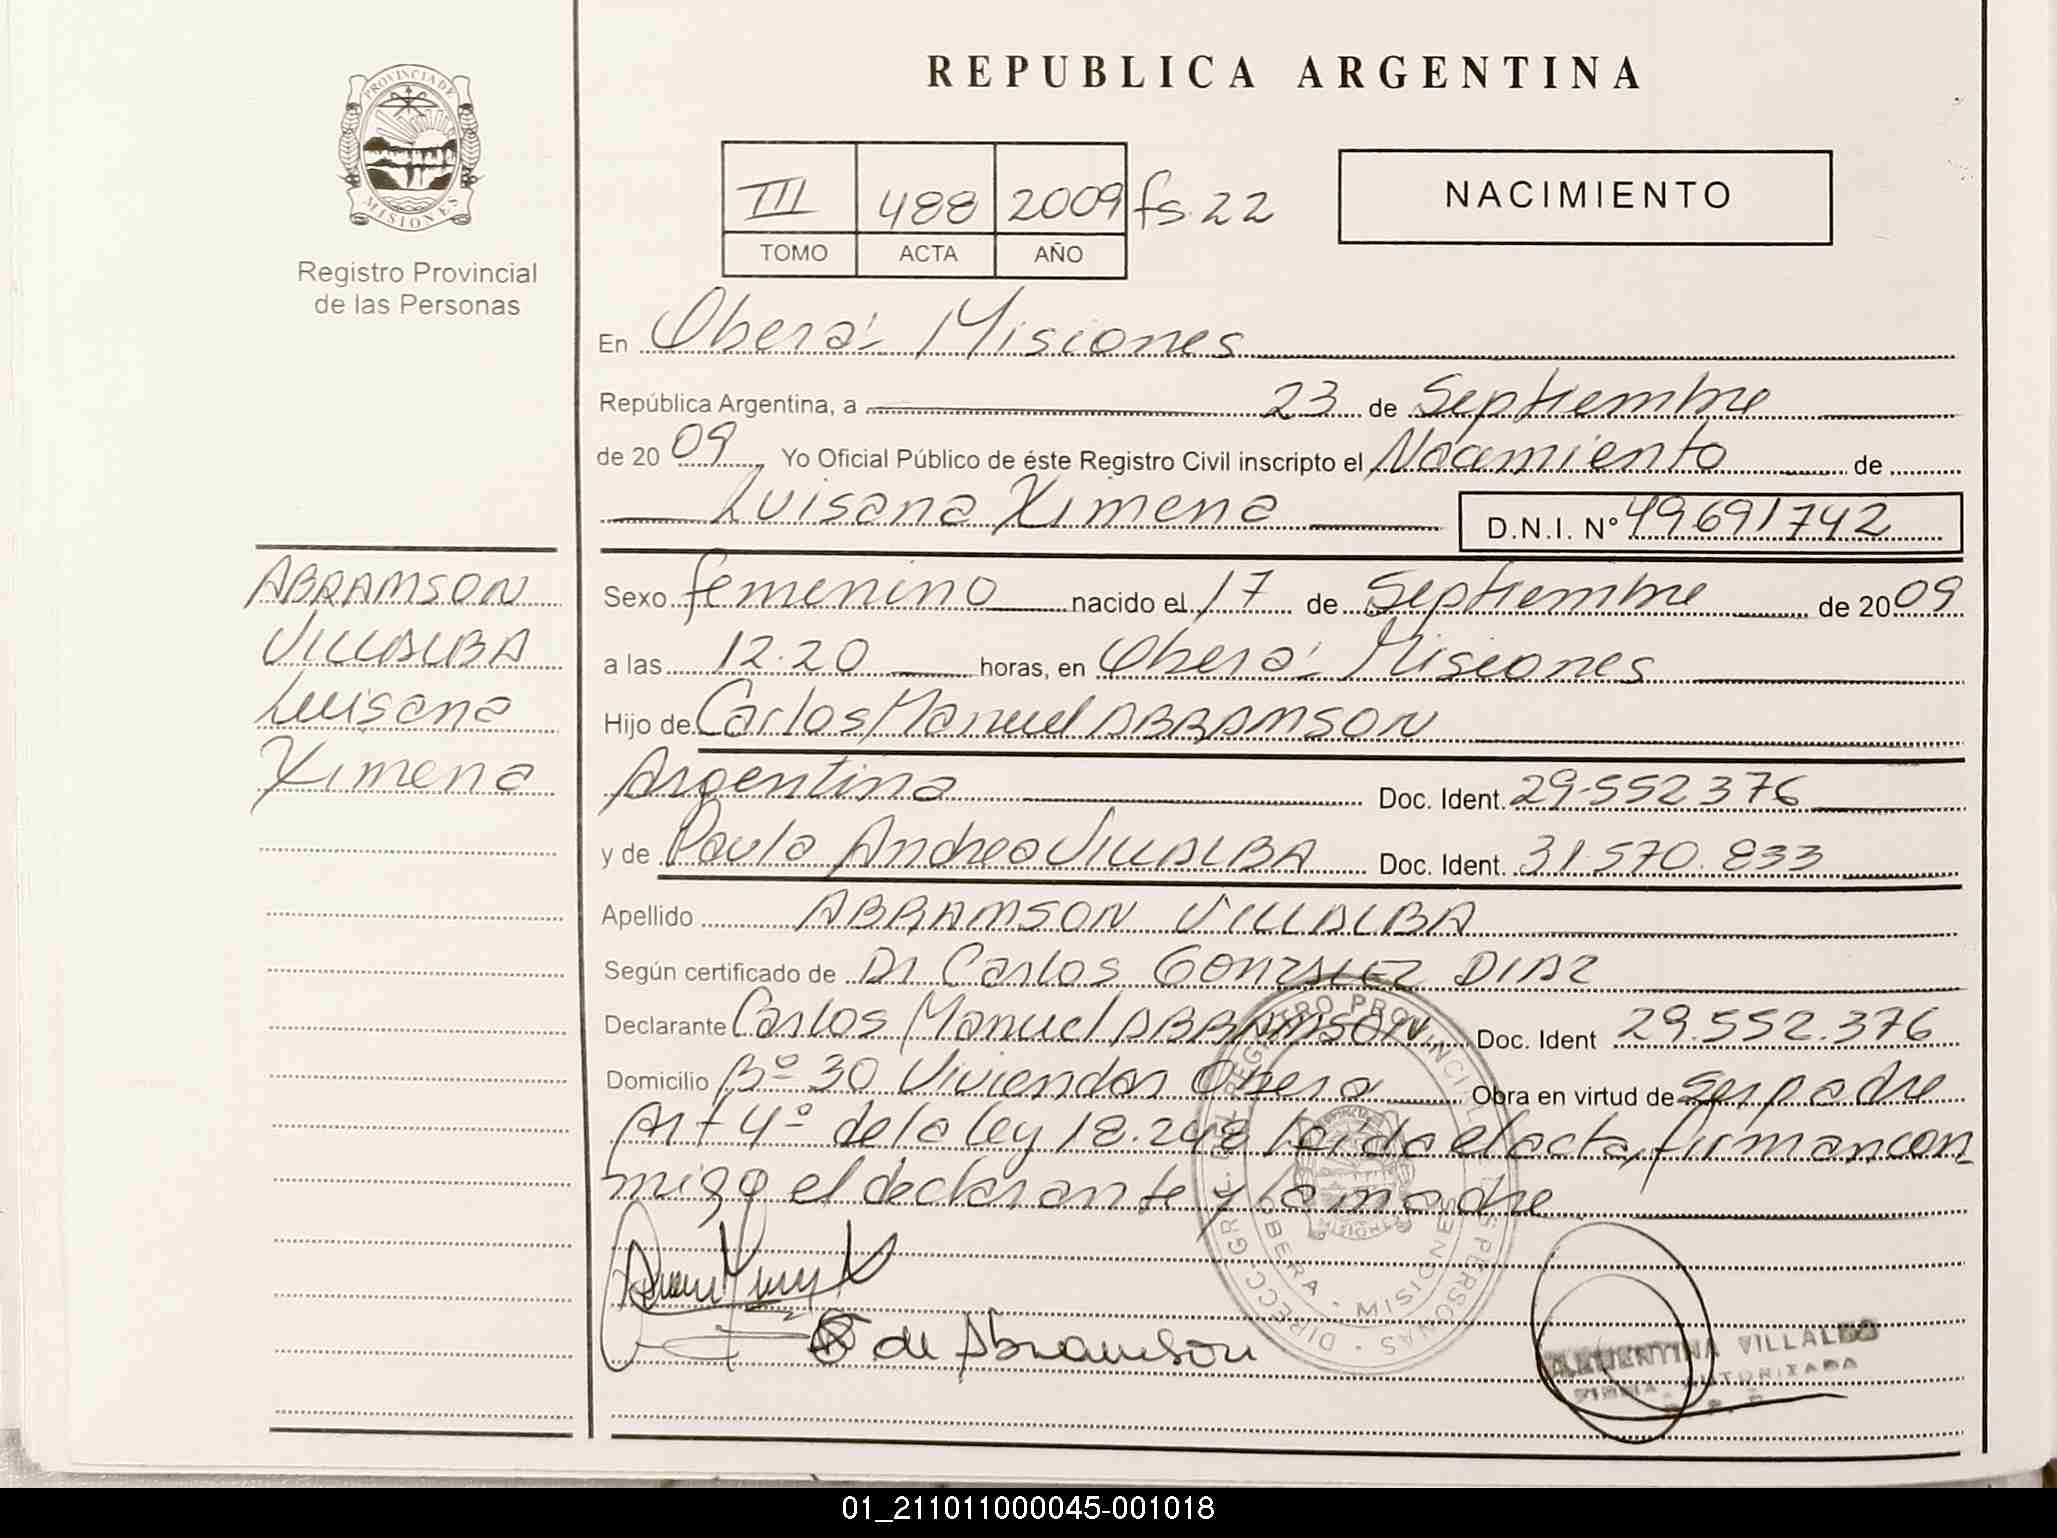 REPUBLICA ARGENTINA
PROVINCIA DE
MISIONES
Registro Provincial
de las Personas
III 488 2009 fs. 22
TOMO ACTA AÑO
NACIMIENTO
En Oberá - Misiones
República Argentina, a 23 de Septiembre
de 20 09 Yo Oficial Público de éste Registro Civil inscripto el Nacimiento de
Luisana Ximena D.N.I. Nº 49691742
ABRAMSON
VILLALBA
Luisana
Ximena
Sexo femenino nacido el 17 de Septiembre de 20 09
a las 12.20 horas, en Oberá - Misiones
Hijo de Carlos Manuel ABRAMSON
Argentina Doc. Ident. 29.552376
y de Paula Andrea VILLALBA Doc. Ident. 31.570.833
Apellido ABRAMSON VILLALBA
Según certificado de Dr Carlos GONZALEZ DIAZ
Declarante Carlos Manuel ABRAMSON Doc. Ident 29.552.376
Domicilio Bº 30 Viviendas Obera Obra en virtud de ser padre
Art 4º de la ley 18.248 Leida el acta, firman con
migo el declarante y la madre
de Abramson
OBERA - MISIONES
ARGENTINA VILLALBA
FIRMA AUTORIZADA
01_211011000045-001018